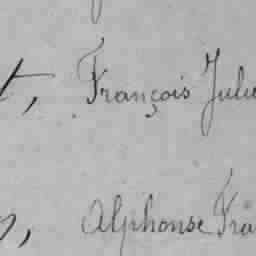 t, François Julie
, Alphonse Fra